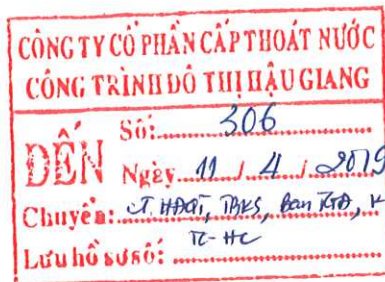 CÔNG TY CỔ PHẦN CẤP THOÁT NƯỚC
CÔNG TRÌNH ĐÔ THỊ HẬU GIANG
ĐẾN
Số: 306
Ngày 11 / 4 / 2019
Chuyển: CT. HĐQT, TBKS, Ban TGĐ,
TC-HC
Lưu hồ sơ số: